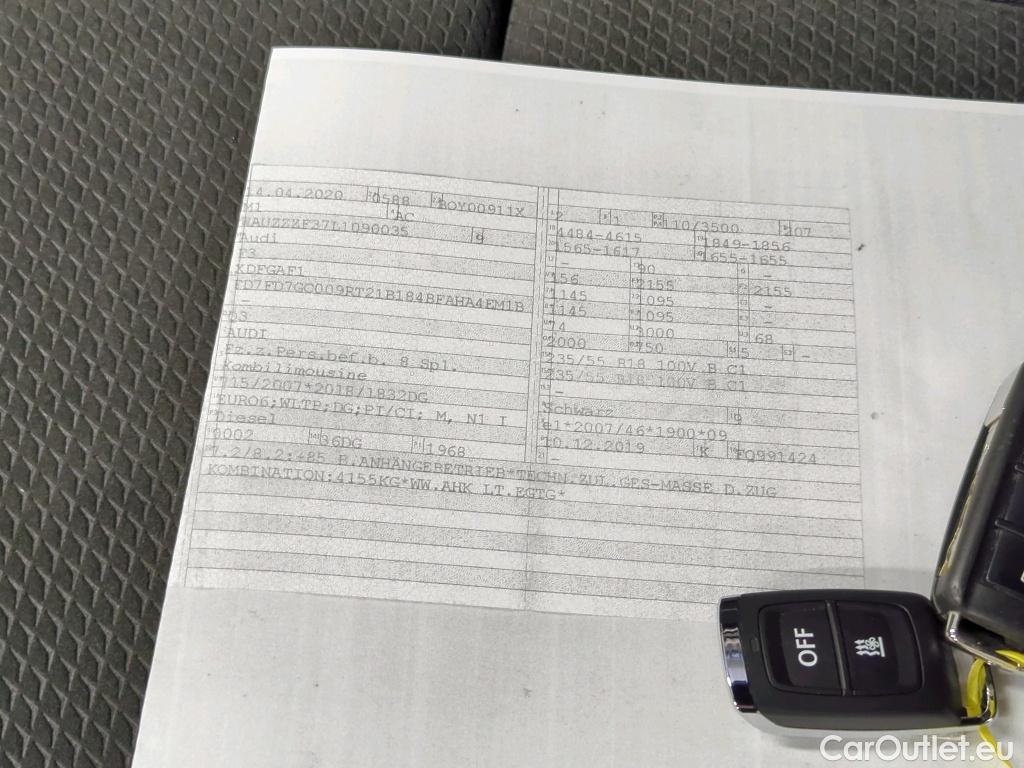 14.04.2020 0588 BOY00911X
M1 AC
WAUZZZF37L1090035 9
Audi
F3
XDFGAF1
FD7FD7GC009RT21B184BFAHA4EM1B
-
Q3
AUDI
Fz.z.Pers.bef.b. 8 Spl.
Kombilimousine
715/2007*2018/1832DG
EURO6;WLTP;DG;PI/CI; M, N1 I
Diesel
0002 36DG 1968
2 1 110/3500 207
4484-4615 1849-1856
1565-1617 1655-1655
- 90 -
156 2155 2155
1145 1095 -
1145 1095 -
74 3000 68
2000 750 5 -
235/55 R18 100V B C1
235/55 R18 100V B C1
-
Schwarz 9
e1*2007/46*1900*09
10.12.2019 K FQ991424
-
7.2/8.2:+85 B.ANHÄNGEBETRIEB*TECHN.ZUL.GES-MASSE D.ZUG
KOMBINATION:4155KG*WW.AHK LT.EGTG*
OFF
CarOutlet.eu